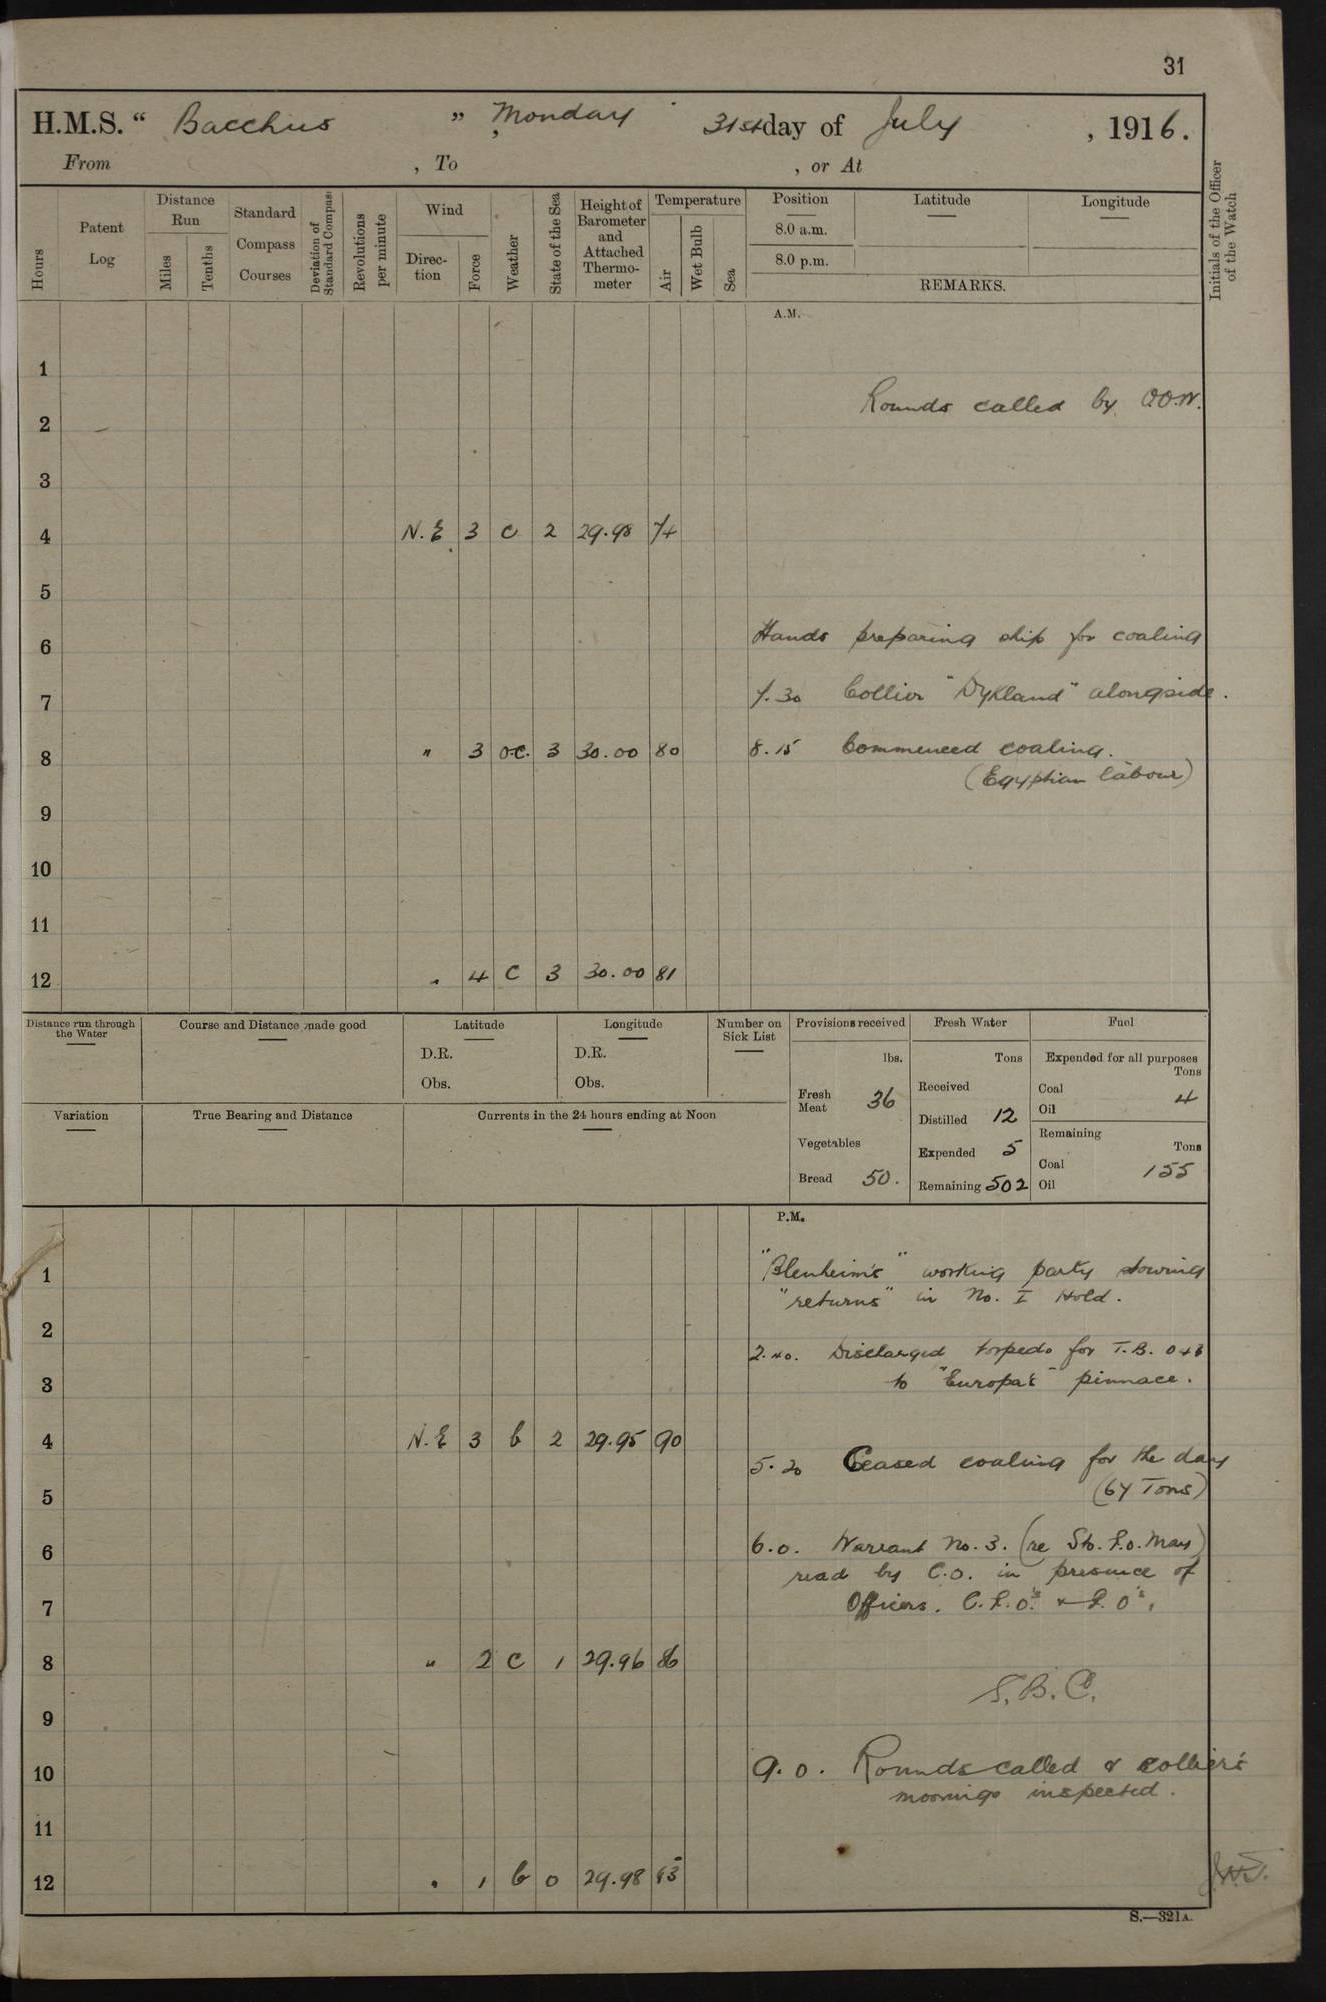 31
H.M.S. “ Bacchus ” , Monday 31st day of July , 1916.
From , To , or At
Hours
Patent Log
Distance Run
Miles
Tenths
Standard Compass Courses
Deviation of Standard Compass
Revolutions per minute
Wind
Direction
Force
Weather
State of the Sea
Height of Barometer and Attached Thermometer
Temperature
Air
Wet Bulb
Sea
Position
8.0 a.m.
8.0 p.m.
Latitude
Longitude
REMARKS.
Initials of the Officer of the Watch
A.M.
1
Rounds called by O.O.W.
2
3
4 N.E 3 c 2 29.98 74
5
6 Hands preparing ship for coaling
7 7.30 Collier "Dykland" alongside.
8 " 3 oc. 3 30.00 80 8.15 Commenced coaling.
(Egyptian labour)
9
10
11
12 " 4 c 3 30.00 81
Distance run through the Water
Course and Distance made good
Latitude
D.R.
Obs.
Longitude
D.R.
Obs.
Number on Sick List
Provisions received
lbs.
Fresh Meat 36
Vegetables
Bread 50.
Fresh Water
Tons
Received
Distilled 12
Expended 5
Remaining 502
Fuel
Expended for all purposes
Tons
Coal 4
Oil
Remaining
Tons
Coal 155
Oil
Variation
True Bearing and Distance
Currents in the 24 hours ending at Noon
P.M.
1 "Blenheim's" working party stowing
"returns" in No. I Hold.
2
2.40. Discharged torpedo for T.B. 043
3 to "Europa's" pinnace.
4 N.E 3 b 2 29.95 90
5.20 Ceased coaling for the day
5 (67 Tons)
6 6.0. Warrant No. 3. (re Sto. P.O. May)
read by C.O. in presence of
7 Officers. C.P.O.'s & P.O's.
8 " 2 c 1 29.96 86
S.B.C.
9
10 9.0. Rounds called & collier's
moorings inspected.
11
12 " 1 b 0 29.98 83
S.—321A.